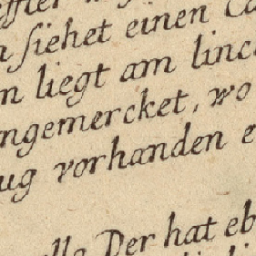 siehet einen
liegt am linc
ngemercket, wo
ug vorhanden e
Der hat eb